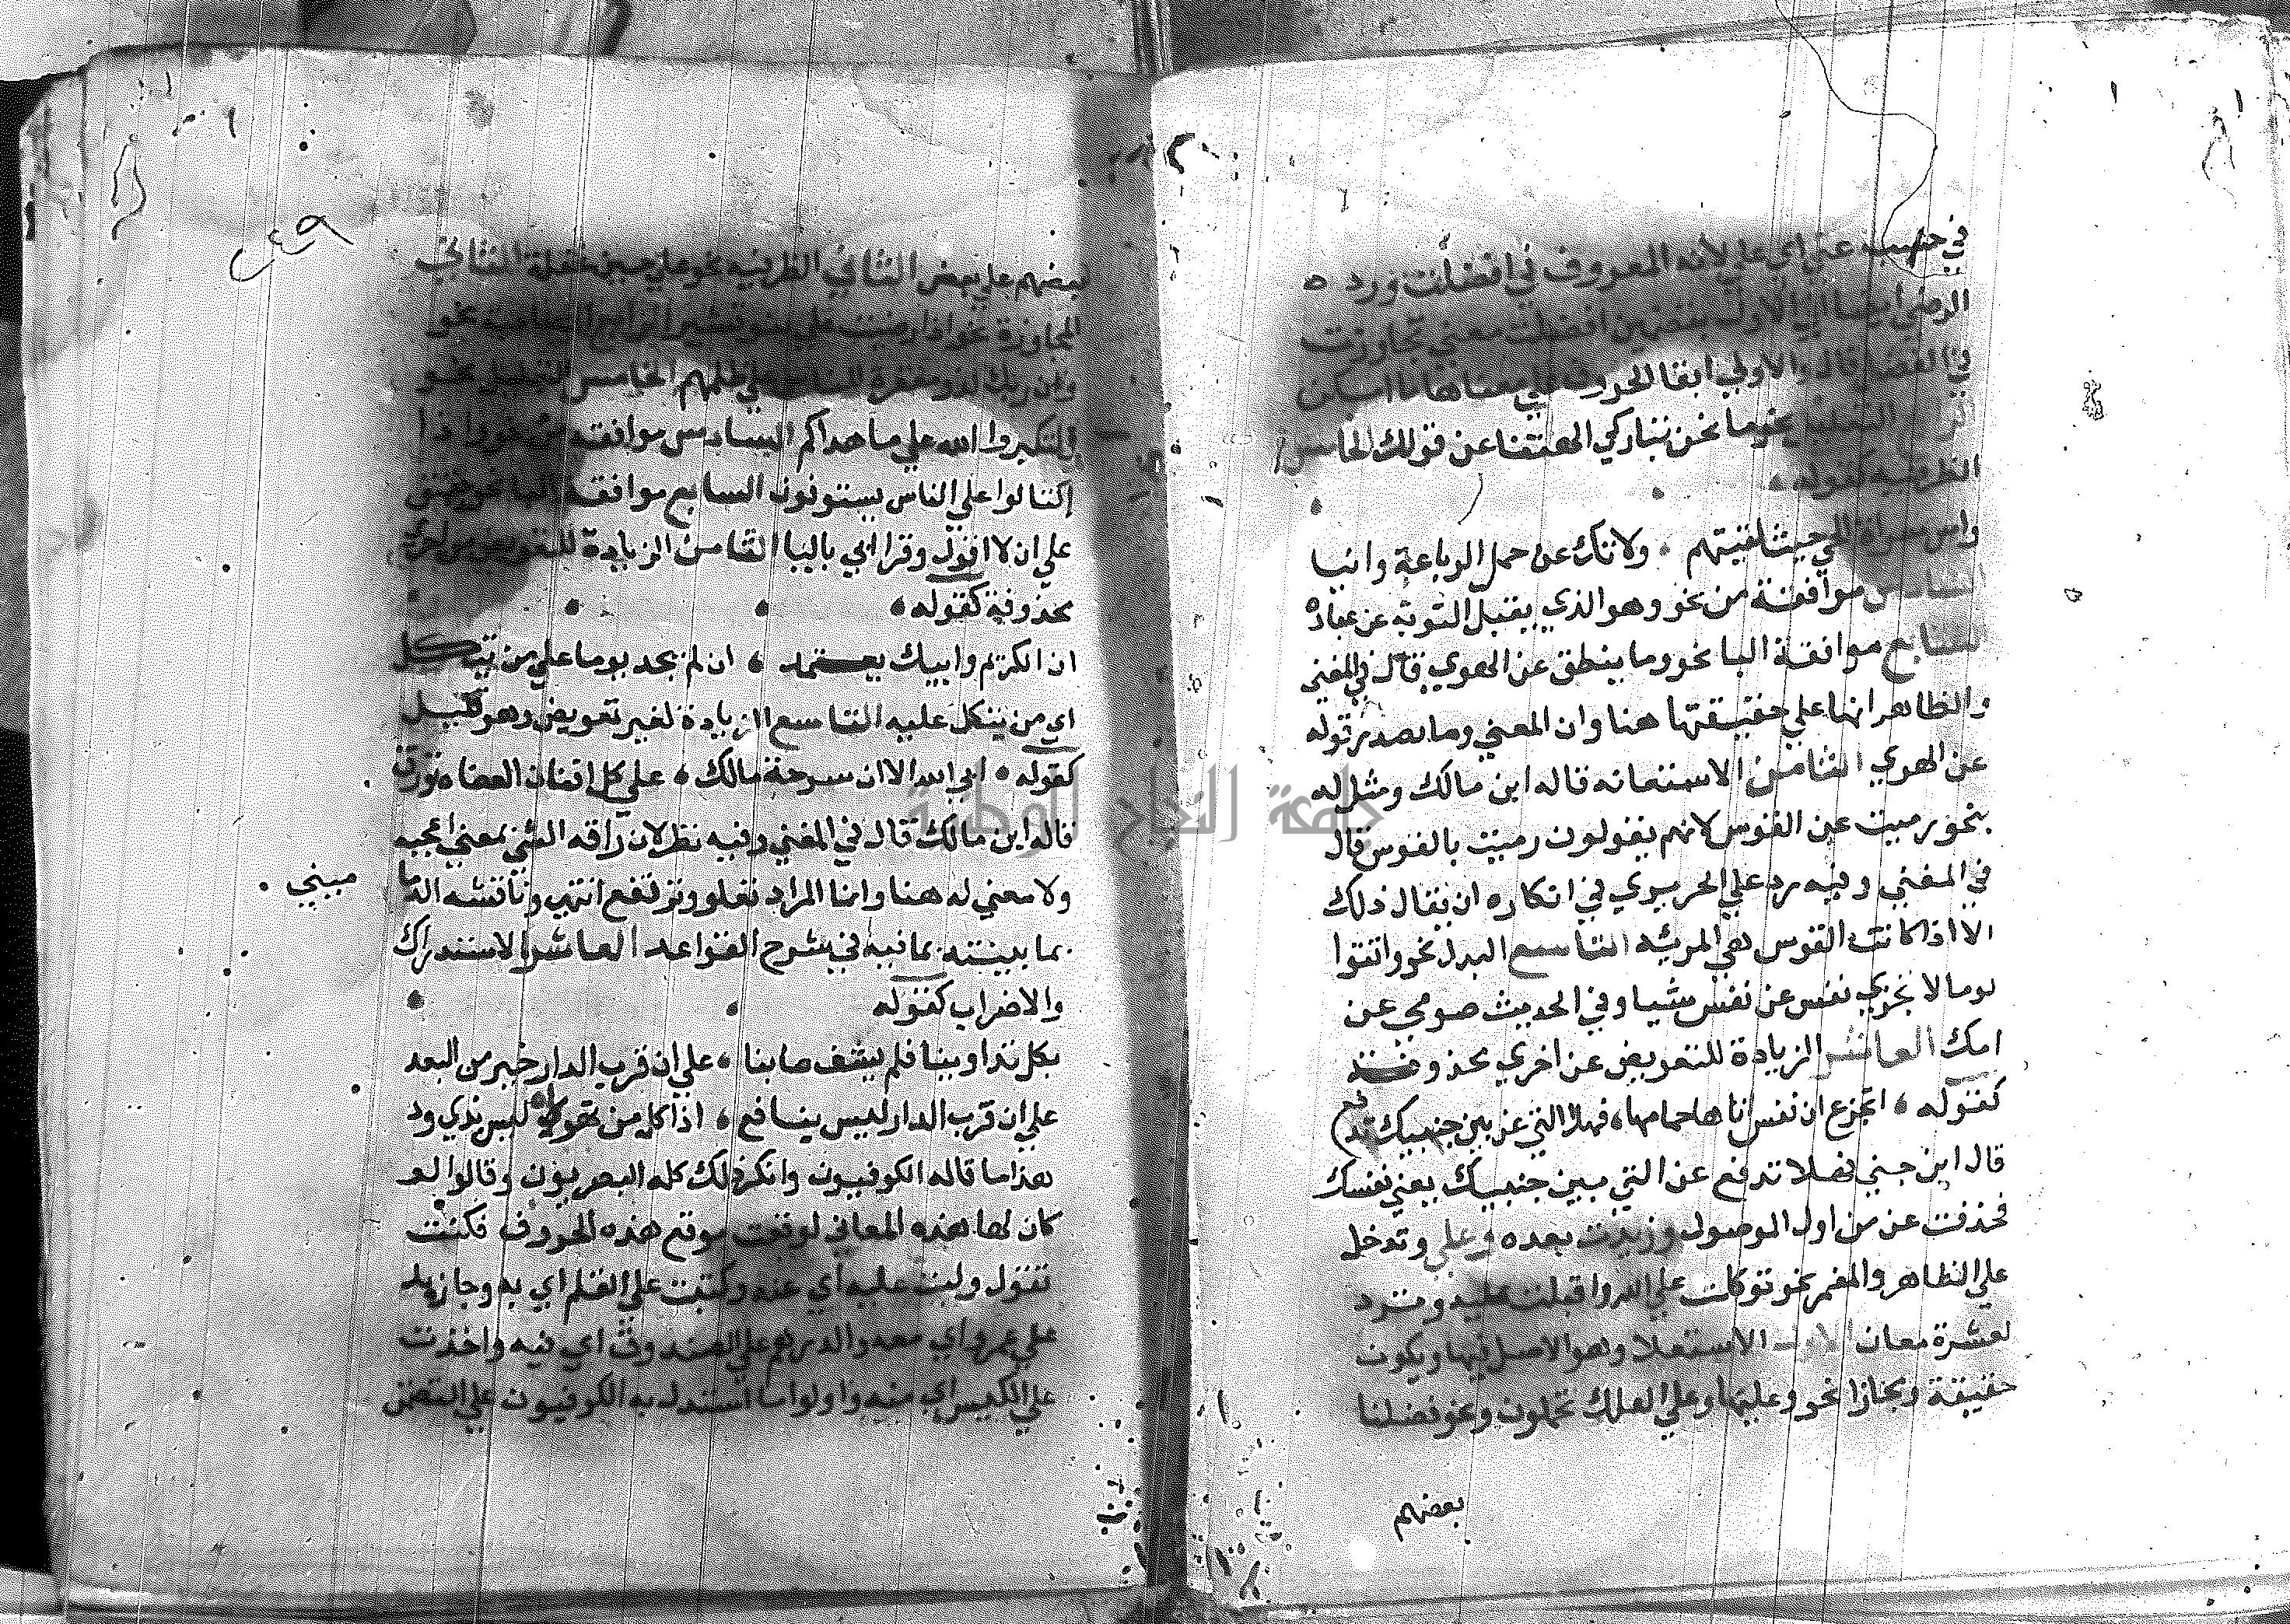 في حبيب عني اي علي لانه المعروف في افضلت ورد ه
الرضي ايضا الي الاول بتضمين افضلت معني تجاوزت
في الفضل قال والاولي ابقا الحروف علي معناها ما امكن
التعليل نحو وما نحن بتاركي الهتنا عن قولك الخامس
الظرفية كقوله
سراة الحي حيث لقيتهم ولا تك عن حمل الرباعة وانيا
السادس موافقة من نحو وهو الذي يقبل التوبة عن عباده
السابع موافقة البا نحو وما ينطق عن الهوي قال في المغني
والظاهر انها علي حقيقتها هنا وان المعني وما يصدر قوله
عن الهوي الثامن الاستعانه قاله ابن مالك ومثل له
بنحو رميت عن القوس لانهم يقولون رميت بالقوس قال
في المغني وفيه رد علي الحريري في انكاره ان يقال ذلك
الا اذا كانت القوس هي المرميه التاسع البدل نحو واتقوا
يوما لا تجزي نفس عن نفس شيا وفي الحديث صومي عن
امك العاشر الزيادة للتعويض عن اخري محذوفة
كقوله اتجزع ان نفس اتاها حمامها فهلا التي عن بين جنبيك تدفع
قال ابن جني فهلا تدفع عن التي بين جنبيك يعني نفسك
فحذفت عن من اول الموصول وزيدت بعده وعلي وتدخل
علي الظاهر والمضمر نحو توكلت علي الله واقبلت عليه وترد
لعشرة معان الاول الاستعلا وهو الاصل فيها ويكون
حقيقة ومجازا نحو وعليها وعلي الفلك تحملون ونحو فضلنا
بعضهم
٤٩
بعضهم علي بعض الثاني الظرفيه نحو علي حين غفلة الثالث
المجاوزة نحو اذا رضيت علي بنو قشير الرابع المصاحبة نحو
وان ربك لذو مغفرة للناس علي ظلمهم الخامس التعليل نحو
ولتكبروا الله علي ما هداكم السادس موافقة من نحو اذا
اكتالوا علي الناس يستوفون السابع موافقة البا نحو حقيق
علي ان لا اقول وقرا ابي باليا الثامن الزيادة للتعويض من اخري
محذوفة كقوله
ان الكريم وابيك يعتمل ان لم يجد يوما علي من يتكل
اي من يتكل عليه التاسع الزيادة لغير تعويض وهو قليل
كقوله ابي الله الا ان سرحة مالك علي كل افنان العضاه تروق
قاله ابن مالك قال في المغني وفيه نظر لان راقه الشي بمعني اعجبه
ولا معني له هنا وانما المراد تعلو وترتفع انتهي وناقشه الدما
ميني
بما بينته بما فيه في شرح القواعد العاشر الاستدراك
والاضراب كقوله
بكل تداوينا فلم يشف ما بنا علي ان قرب الدار خير من البعد
علي ان قرب الدار ليس بنافع اذا كان من تهواه ليس بذي ود
هذا ما قاله الكوفيون وانكر ذلك كله البصريون وقالوا لو
كان لها هذه المعاني لوقعت موقع هذه الحروف فكنت
تقول وليت عليه اي عنه وكتبت علي القلم اي به وجا زيد
علي عمرو اي معه والدرهم علي الصندوق اي فيه واخذت
علي الكيس اي منه واولوا ما استدل به الكوفيون علي التضمن
جامعة النجاح الوطنية